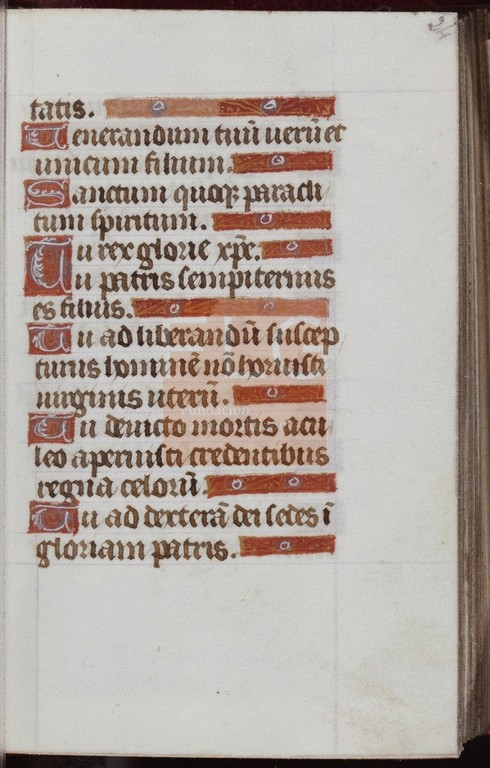 tatis.
Venerandum tuū verū et
unicum filium.
Sanctum quoqꝫ paracli
tum spiritum.
Tu rex glorie xp̄e.
Tu patris sempiternus
es filius.
Tu ad liberandū suscep
turus hominē nō horruisti
virginis uterū.
Tu devicto mortis acu
leo aperuisti credentibus
regna celorū.
Tu ad dexterā dei sedes ī
gloriam patris.
Fundación